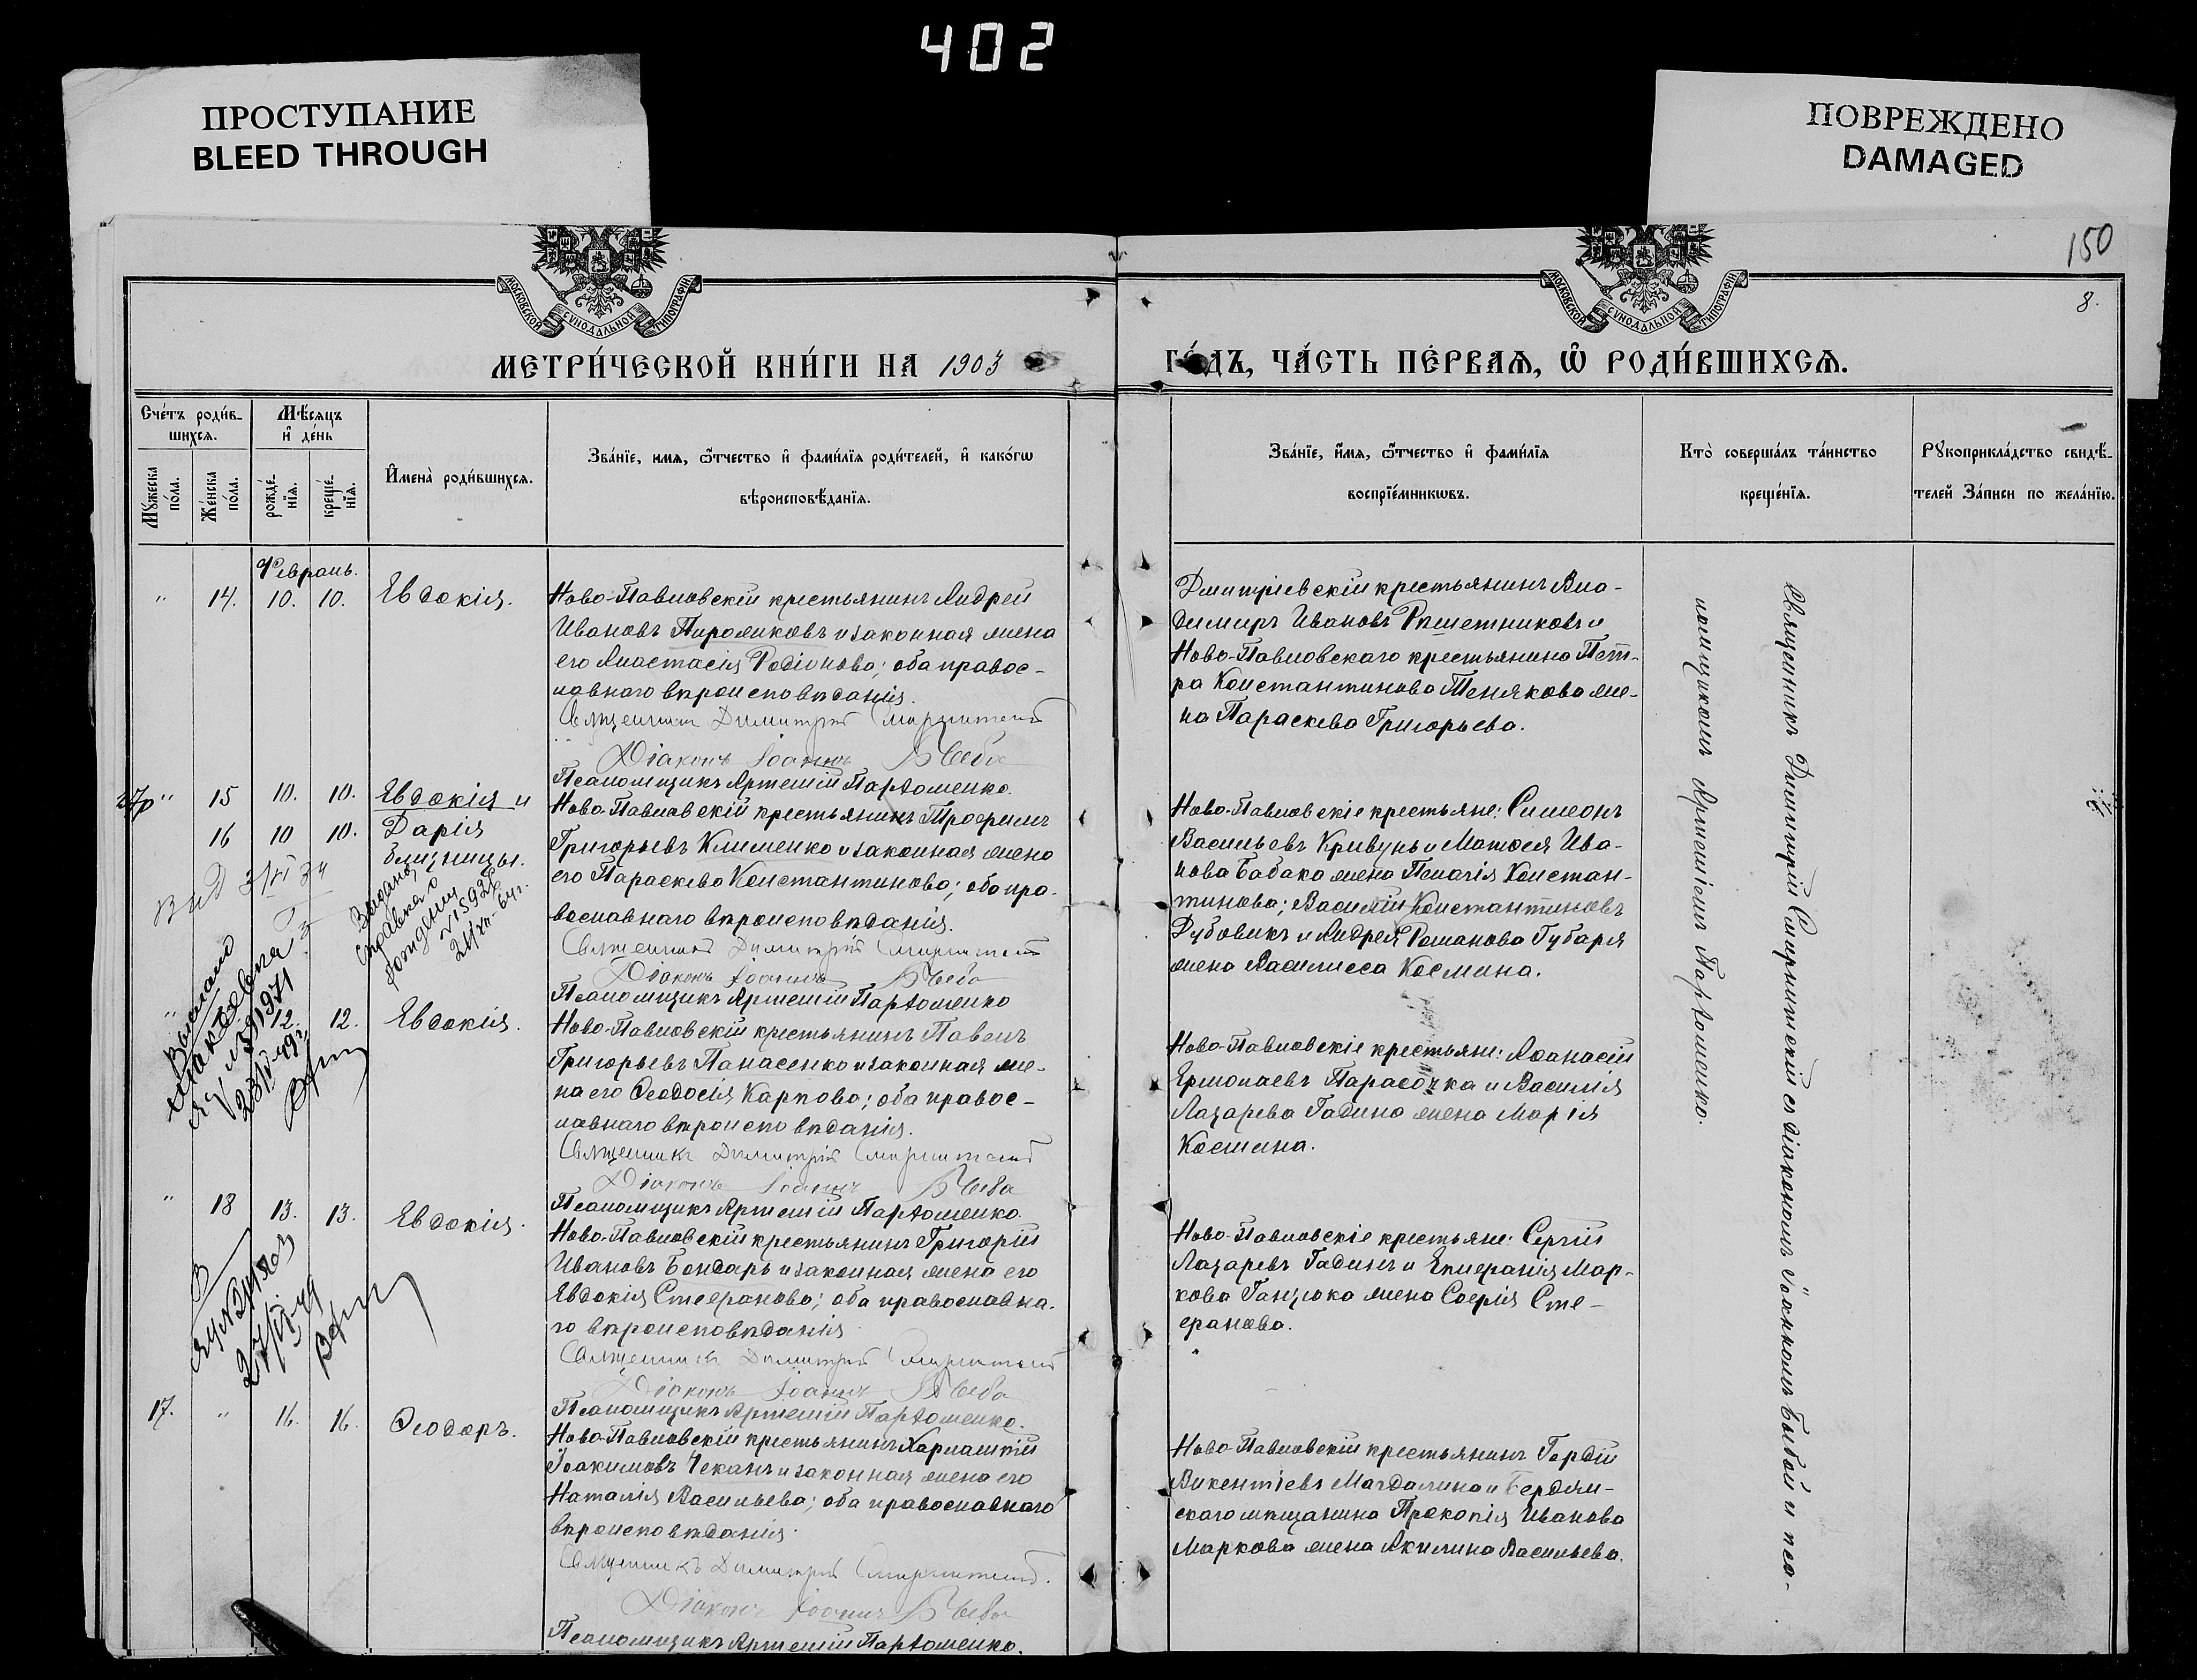 402
ПРОСТУПАНИЕ
BLEED THROUGH
ПОВРЕЖДЕНО
DAMAGED
150
8.
МОСКОВСКОЙ СѴНОДАЛЬНОЙ ТИПОГРАФІИ
МОСКОВСКОЙ СѴНОДАЛЬНОЙ ТИПОГРАФІИ
МЕТРИ́ЧЕСКОЙ КНИ́ГИ НА 1903
ГО́ДЪ, ЧА́СТЬ ПЕ́РВАѦ, Ѡ҆ РОДИ́ВШИХСѦ.
Сче́тъ роди́в-
шихсѧ.
Мѣ́сѧцъ
и҆ де́нь
Мꙋ́жеска
по́ла.
Же́нска
по́ла.
рожде́-
нїѧ.
креще́-
нїѧ.
И҆мена̀ роди́вшихсѧ.
Зва́нїе, имѧ, ѻ҆́тчество и҆ фами́лїѧ роди́телей, и҆ како́гѡ
вѣроисповѣ́данїѧ.
Зва́нїе, и҆́мѧ, ѻ҆́тчество и҆ фами́лїѧ
воспрїе́мникѡвъ.
Кто̀ соверша́лъ та́инство
креще́нїѧ.
Рꙋкоприкла́дство свидѣ́-
телей за́писи по жела́нїю.
Февраль.
" 14. 10. 10. Евдокія.
Ново-Павловскій крестьянинъ Андрей
Ивановъ Пироликовъ и законная жена
его Анастасія Родіонова; оба правос-
лавнаго вѣроисповѣданія.
Священникъ Димитрій
Діаконъ Іоаннъ
Псаломщикъ Артемій Пархоменко.
Дмитріевскій крестьянинъ Вла-
димиръ Ивановъ Рѣшетниковъ и
Ново-Павловскаго крестьянина Пет-
ра Константинова Тенякова же-
на Параскева Григорьева.
" 15 10. 10. Евдокія и
16 10 10. Дарія
близницы.
Ново-Павловскій крестьянинъ Трофимъ
Григорьевъ Клименко и законная жена
его Параскева Константинова; оба пра-
вославнаго вѣроисповѣданія.
Священникъ Димитрій
Діаконъ Іоаннъ
Псаломщикъ Артемій Пархоменко
Ново-Павловскіе крестьяне: Симеонъ
Васильевъ Кривунь и Матѳея Ива-
нова Бабака жена Пелагія Констан-
тинова; Василій Константиновъ
Дубовикъ и Андрея Романова Губаря
жена Василисса Космина.
Выдана
справка о
рождении
21/XII-64г.
Выдано
" 12. 12. Евдокія.
Ново-Павловскій крестьянинъ Павелъ
Григорьевъ Панасенко и законная же-
на его Ѳеодосія Карпова; оба правос-
лавнаго вѣроисповѣданія.
Священникъ Димитрій
Діаконъ Іоаннъ
Псаломщикъ Артемій Пархоменко.
Ново-Павловскіе крестьяне: Аѳанасій
Ермолаевъ Парасочка и Василія
Лазарева Гадина жена Марія
Космина.
" 18 13. 13. Евдокія.
Ново-Павловскій крестьянинъ Григорій
Ивановъ Бондарь и законная жена его
Евдокія Стефанова; оба православна-
го вѣроисповѣданія
Священникъ Димитрій
Діаконъ Іоаннъ
Псаломщикъ Артемій Пархоменко.
Ново-Павловскіе крестьяне: Сергій
Лазаревъ Гадинъ и Епифанія Мар-
кова Ганзюка жена Софія Сте-
фанова.
17. " 16. 16. Ѳеодоръ.
Ново-Павловскій крестьянинъ Харлампій
Іоакимовъ Чеканъ и законная жена его
Наталія Васильева; оба православнаго
вѣроисповѣданія.
Священникъ Димитрій
Діаконъ Іоаннъ
Псаломщикъ Артемій Пархоменко.
Ново-Павловскій крестьянинъ Гордій
Викентіевъ Магдалина и Бердян-
скаго мѣщанина Прокопія Иванова
Маркова жена Акилина Васильева.
Священникъ Димитрій съ діакономъ Іоанномъ и пса-
ломщикомъ Артеміемъ Пархоменко.